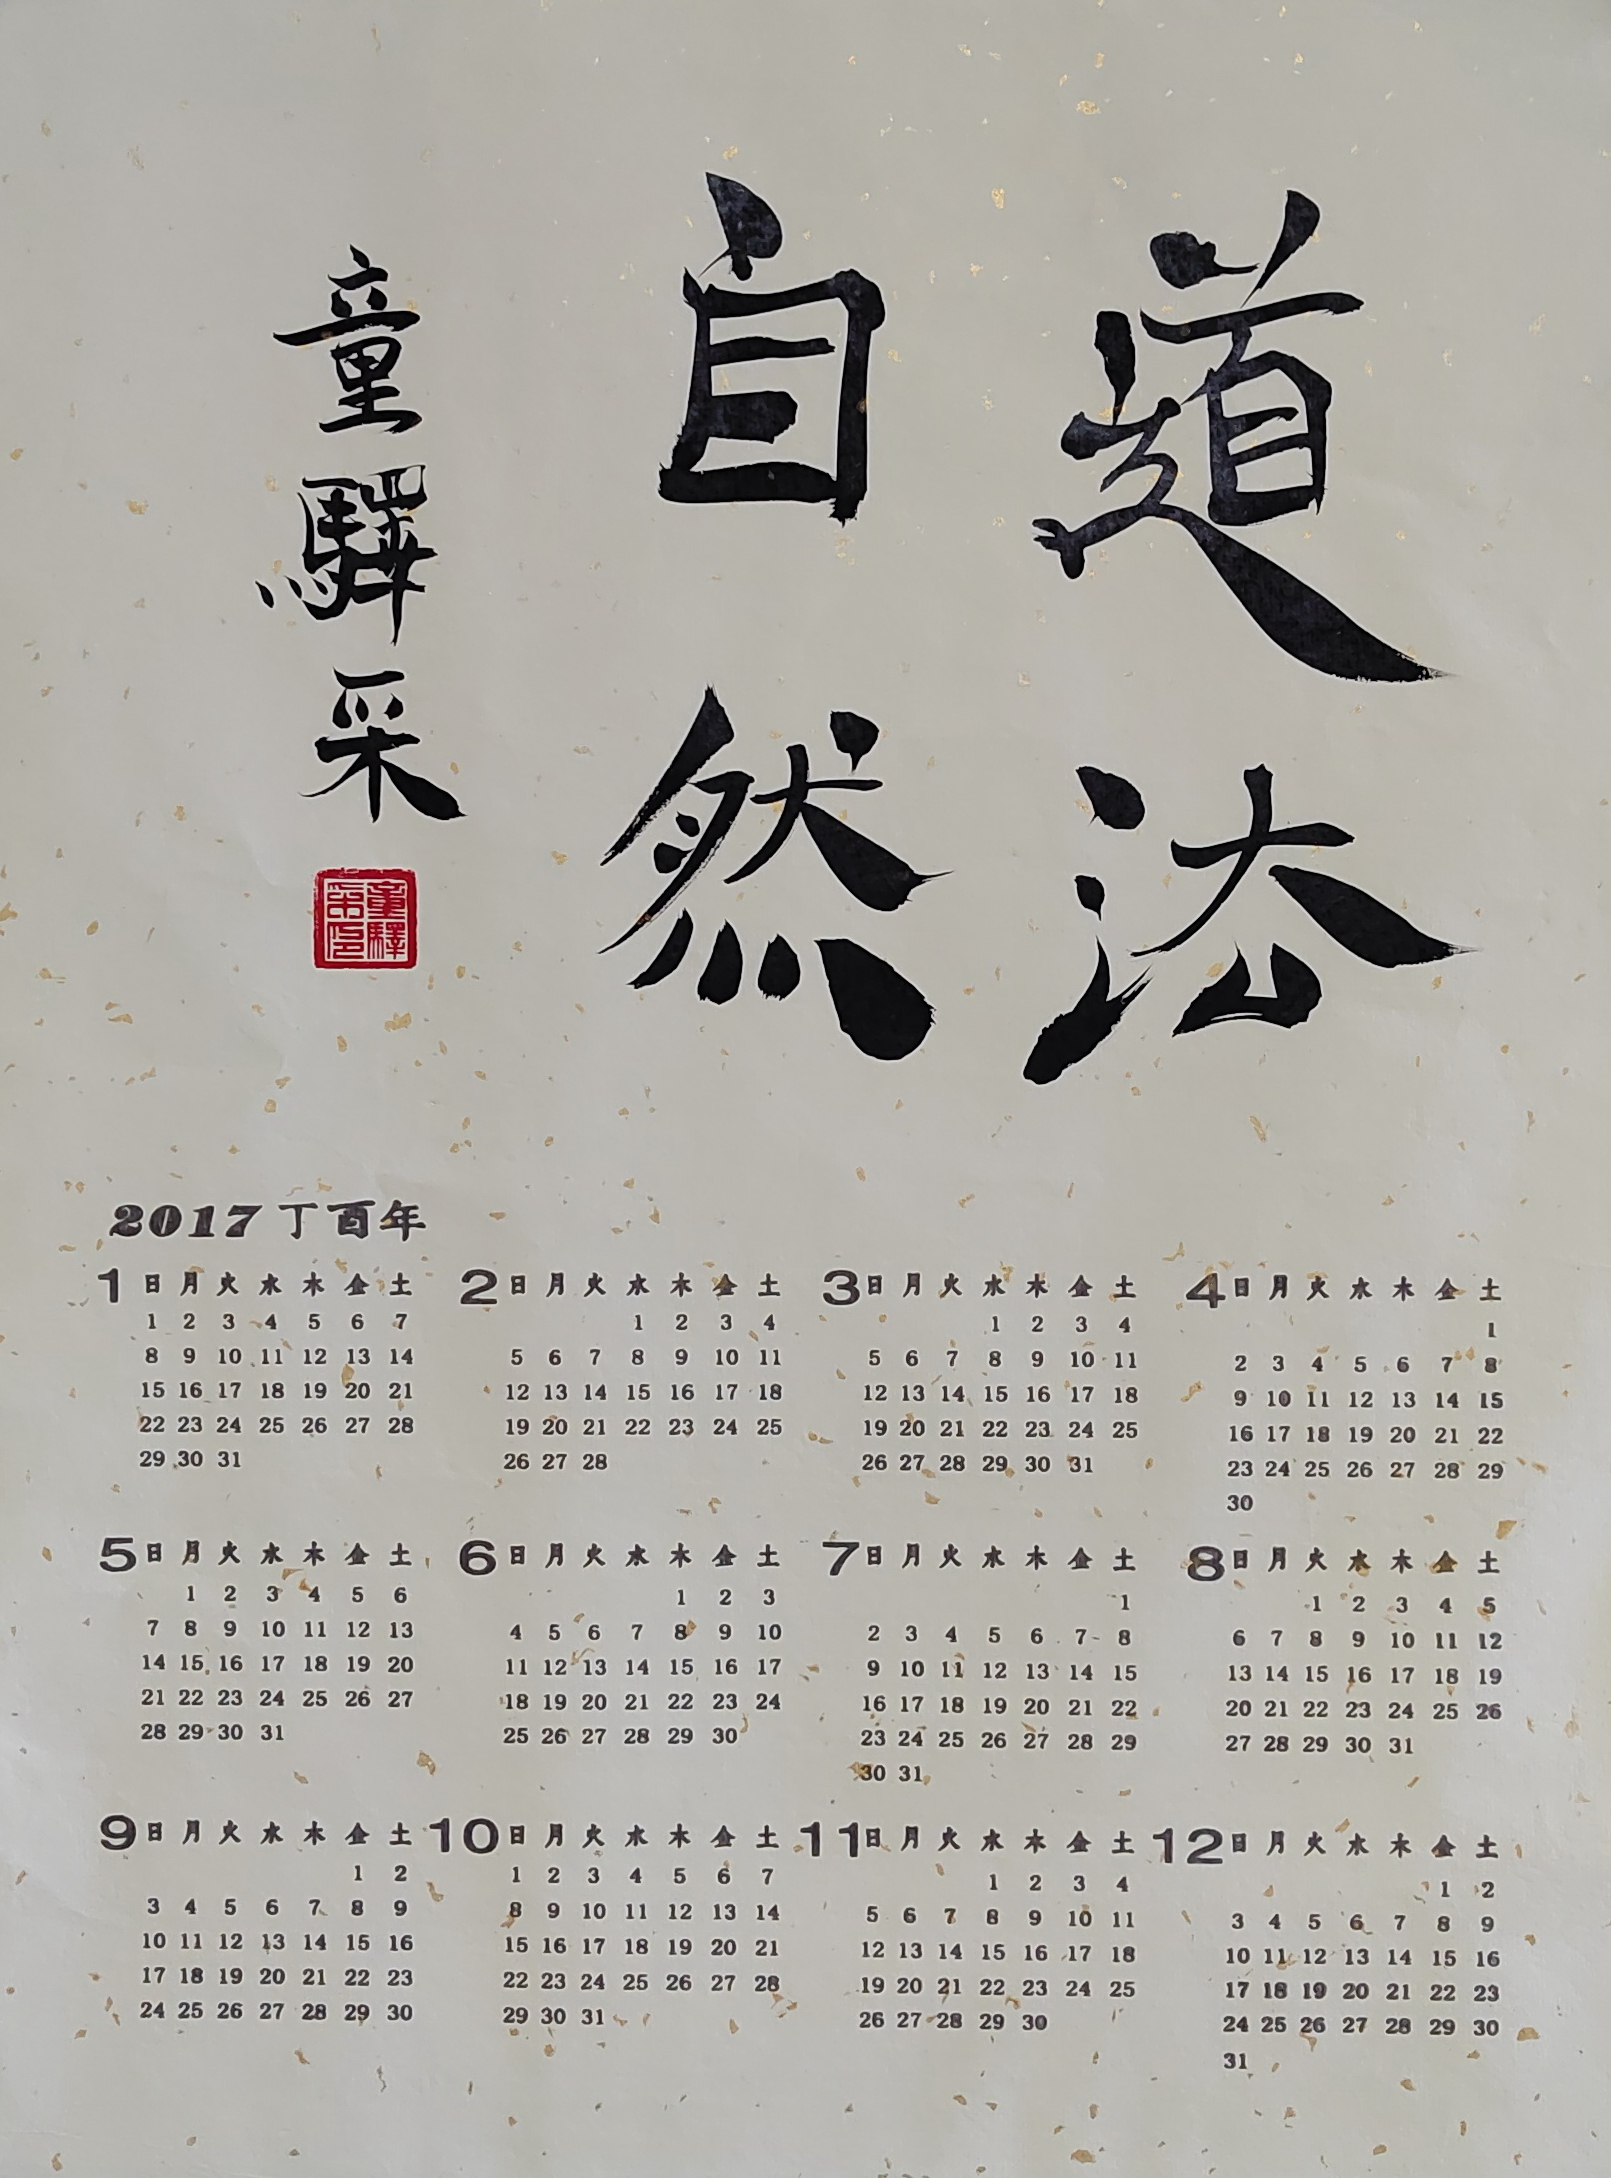 道法
自然
童驛采
童驛
采印
2017 丁酉年
1 日 月 火 水 木 金 土
1 2 3 4 5 6 7
8 9 10 11 12 13 14
15 16 17 18 19 20 21
22 23 24 25 26 27 28
29 30 31
2 日 月 火 水 木 金 土
1 2 3 4
5 6 7 8 9 10 11
12 13 14 15 16 17 18
19 20 21 22 23 24 25
26 27 28
3 日 月 火 水 木 金 土
1 2 3 4
5 6 7 8 9 10 11
12 13 14 15 16 17 18
19 20 21 22 23 24 25
26 27 28 29 30 31
4 日 月 火 水 木 金 土
1
2 3 4 5 6 7 8
9 10 11 12 13 14 15
16 17 18 19 20 21 22
23 24 25 26 27 28 29
30
5 日 月 火 水 木 金 土
1 2 3 4 5 6
7 8 9 10 11 12 13
14 15 16 17 18 19 20
21 22 23 24 25 26 27
28 29 30 31
6 日 月 火 水 木 金 土
1 2 3
4 5 6 7 8 9 10
11 12 13 14 15 16 17
18 19 20 21 22 23 24
25 26 27 28 29 30
7 日 月 火 水 木 金 土
1
2 3 4 5 6 7 8
9 10 11 12 13 14 15
16 17 18 19 20 21 22
23 24 25 26 27 28 29
30 31
8 日 月 火 水 木 金 土
1 2 3 4 5
6 7 8 9 10 11 12
13 14 15 16 17 18 19
20 21 22 23 24 25 26
27 28 29 30 31
9 日 月 火 水 木 金 土
1 2
3 4 5 6 7 8 9
10 11 12 13 14 15 16
17 18 19 20 21 22 23
24 25 26 27 28 29 30
10 日 月 火 水 木 金 土
1 2 3 4 5 6 7
8 9 10 11 12 13 14
15 16 17 18 19 20 21
22 23 24 25 26 27 28
29 30 31
11 日 月 火 水 木 金 土
1 2 3 4
5 6 7 8 9 10 11
12 13 14 15 16 17 18
19 20 21 22 23 24 25
26 27 28 29 30
12 日 月 火 水 木 金 土
1 2
3 4 5 6 7 8 9
10 11 12 13 14 15 16
17 18 19 20 21 22 23
24 25 26 27 28 29 30
31